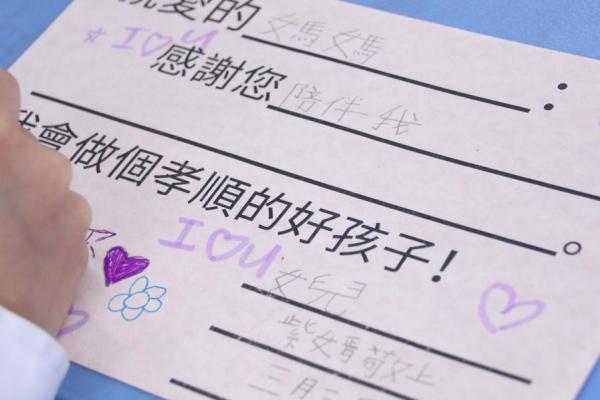 愛的媽媽：
I♡U
感謝您陪伴我
。
我會做個孝順的好孩子！
I♡U
女兒
敬上
三月三